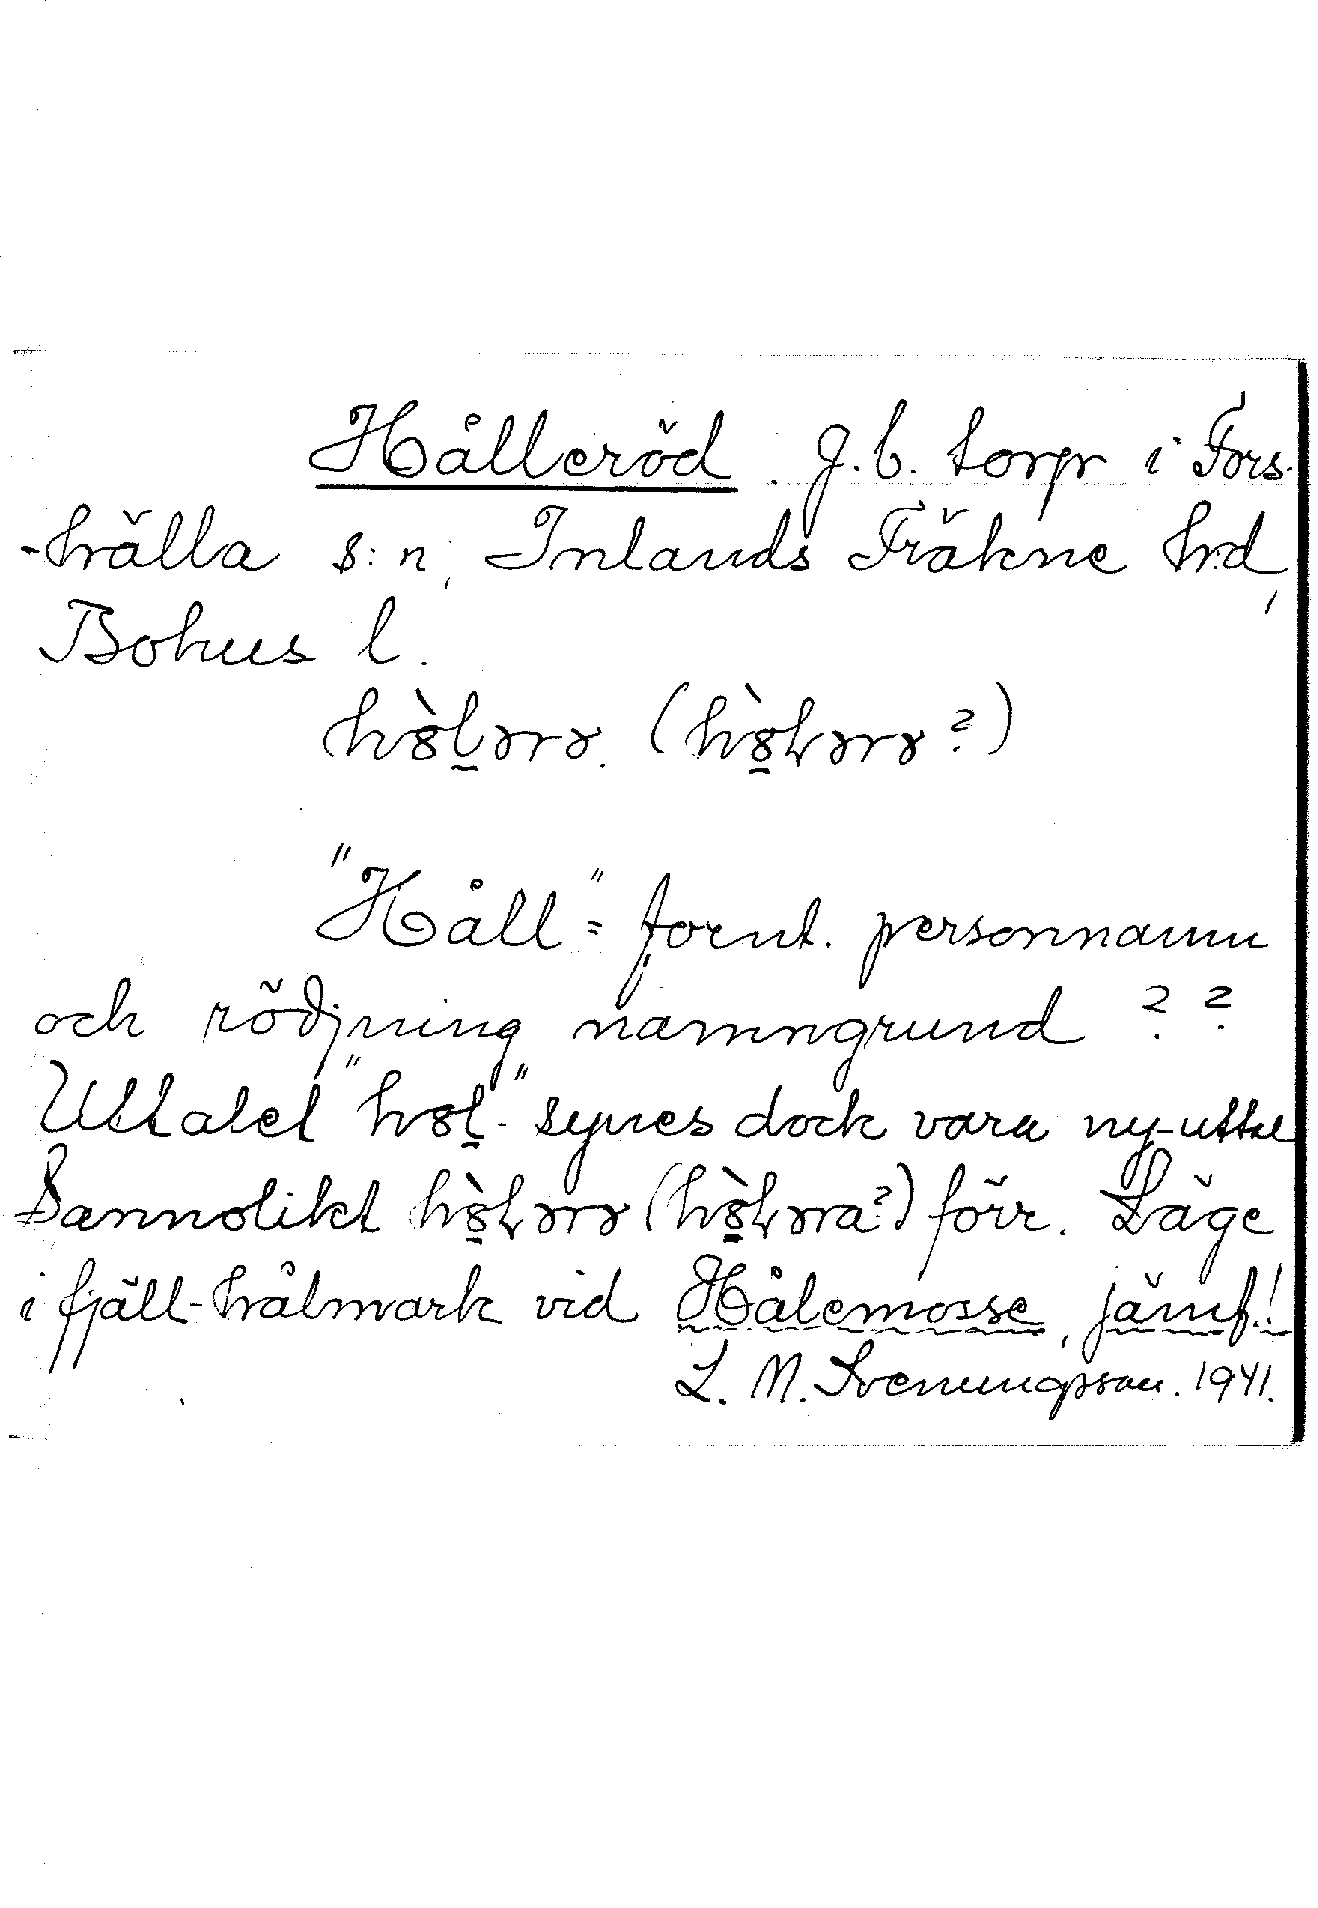 Hålleröd. g.b. torp i Fors-
-hälla s:n, Inlands Fräkne hrd,
Bohus l.
hòl̠ərə. (hò̠ɫərə?)
"Håll" = fornt. personnamn
och rödjning namngrund ??
Uttalet "hol̠-" synes dock vara ny-uttal
Sannolikt hò̠ɫərə (hò̠ɫəra?) förr. Läge
i fjäll-hålmark vid Hålemosse, jämf.!
L. M. Svenungsson. 1941.